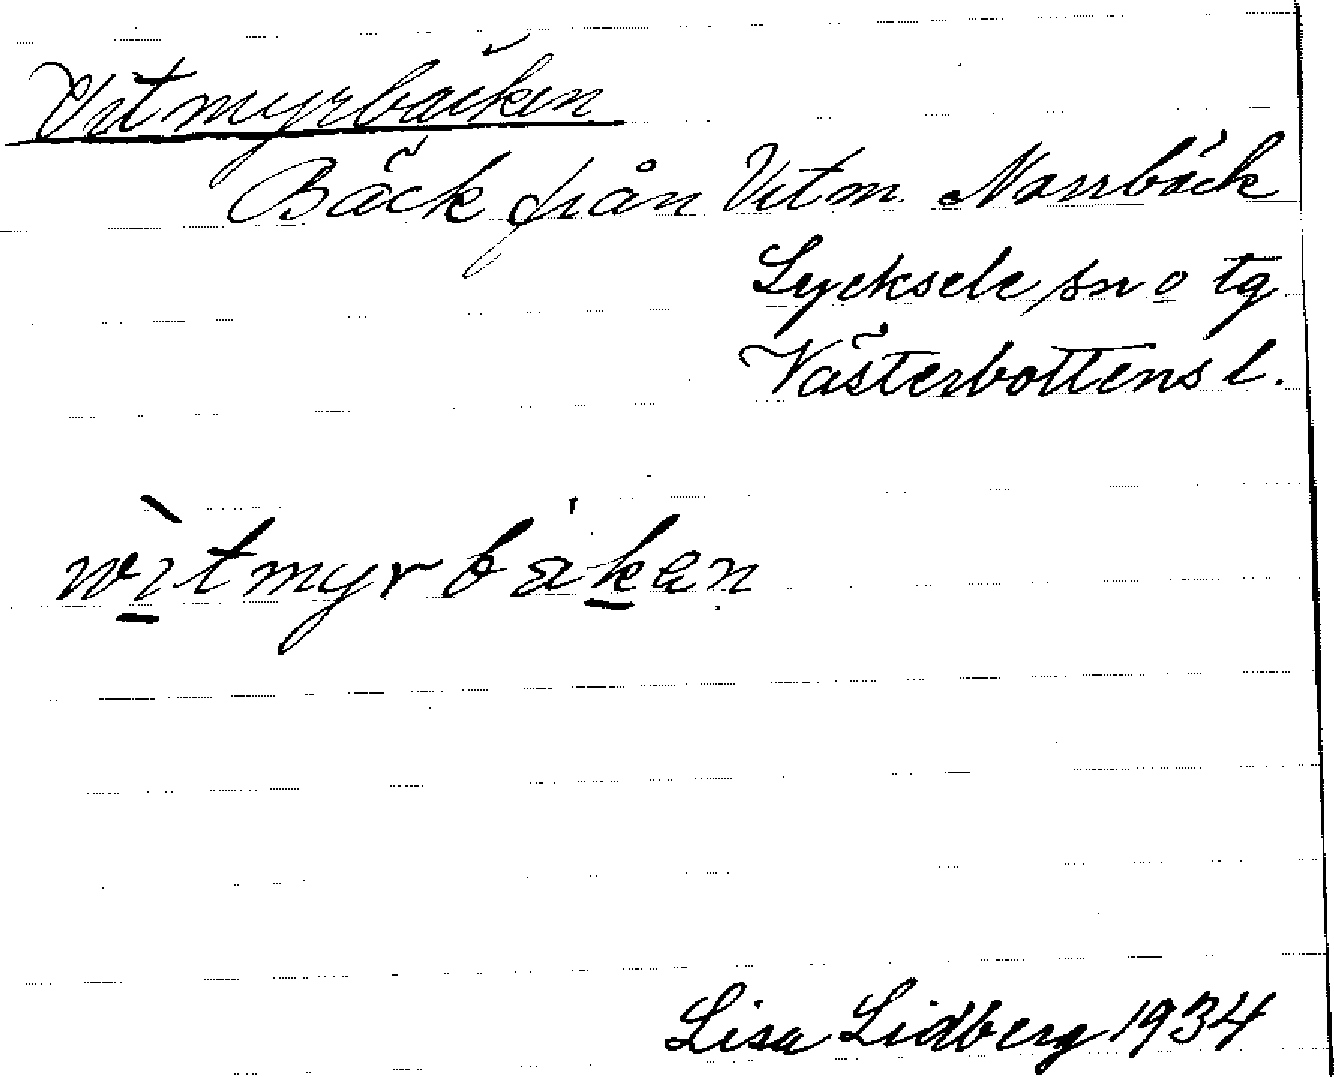 Vitmyrbäcken
Bäck från Vitm. Norrbäck
Lycksele sn o tg
Västerbottens l.
wìtmyrbäkan
Lisa Lidberg 1934